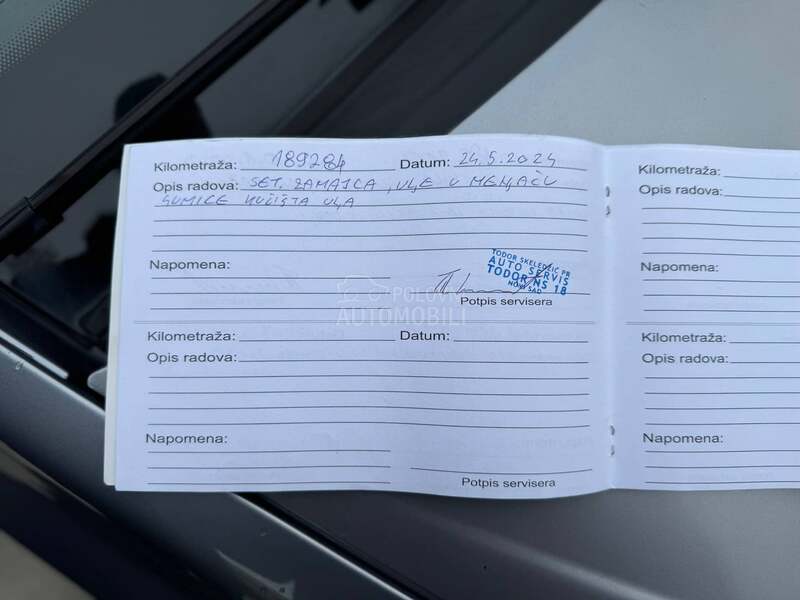 Kilometraža: 189284 Datum: 24.5.2024
Opis radova: SET. ZAMAJCA, ULJE U MENJAČU
GUMICE KUĆIŠTA ULJA
Napomena:
TODOR SKELEDŽIĆ PR
AUTO SERVIS
TODOR NS 18
NOVI SAD
Potpis servisera
POLOVNI
AUTOMOBILI
Kilometraža: Datum:
Opis radova:
Napomena:
Potpis servisera
Kilometraža:
Opis radova:
Napomena:
Kilometraža:
Opis radova:
Napomena: